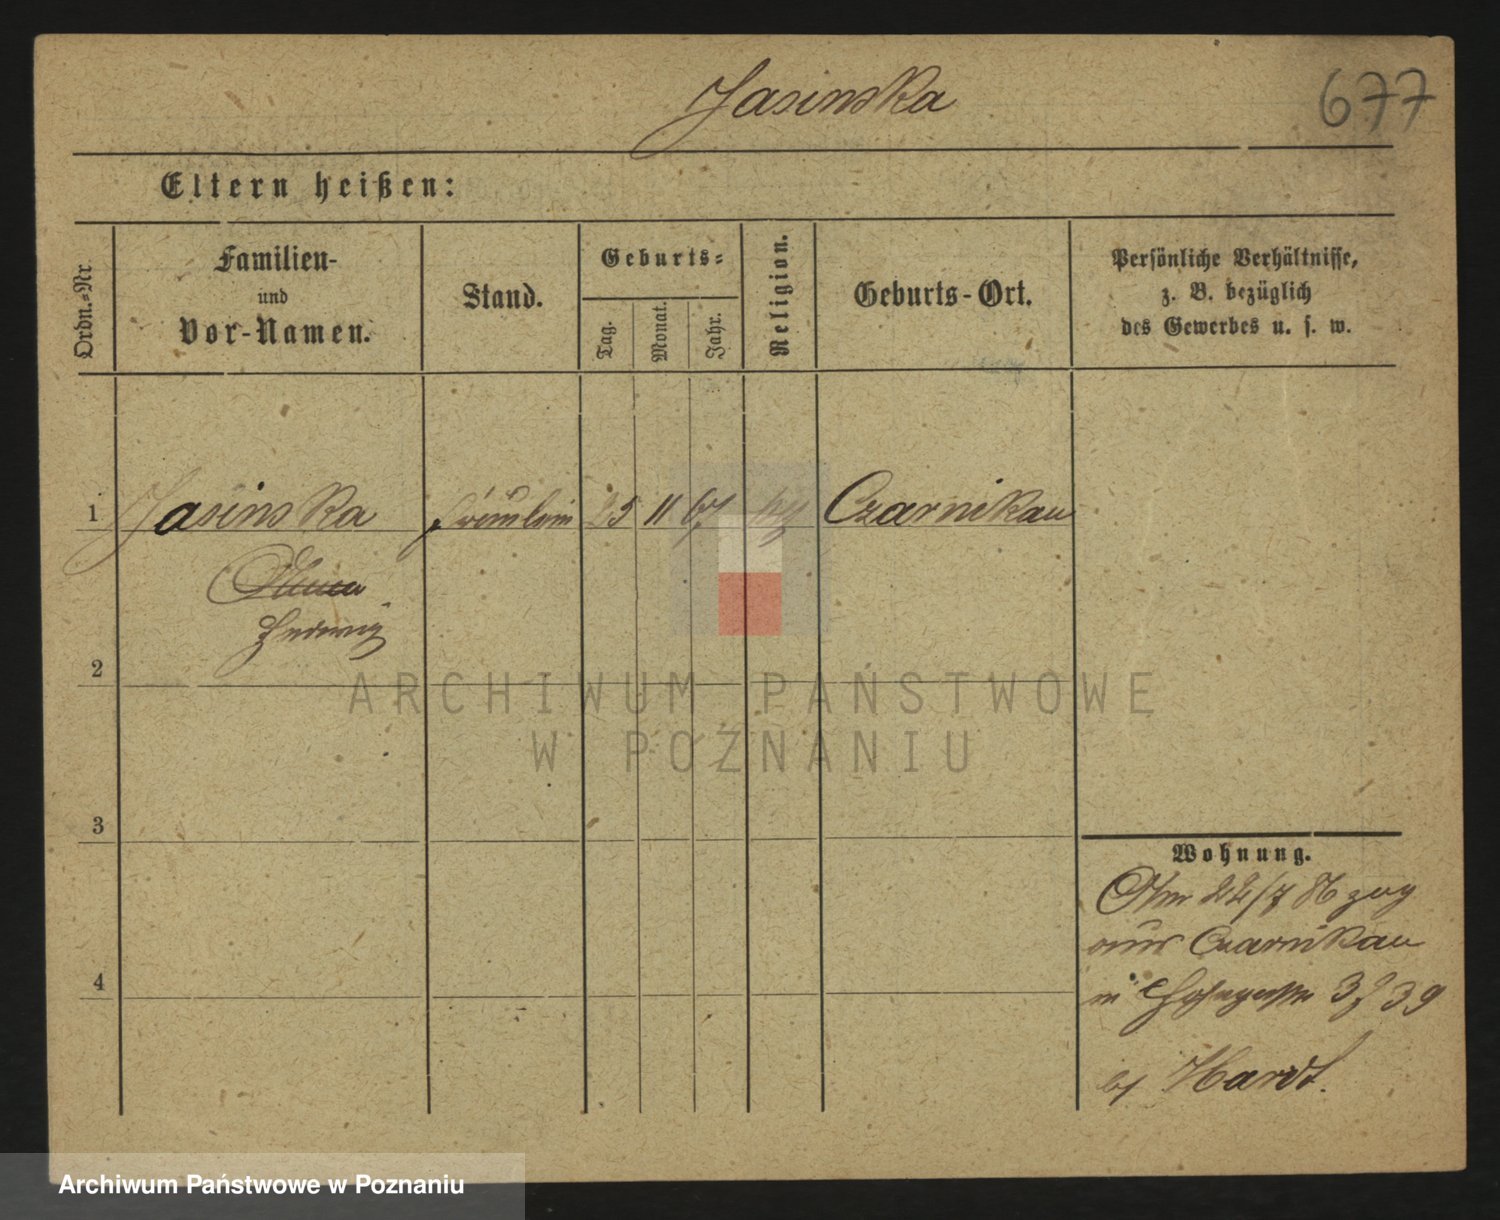 Jasinska
677
Eltern heißen:
Ordn.=Nr
Familien-
und
Vor-Namen.
Stand.
Geburts=
Tag.
Monat.
Jahr.
Religion.
Geburts-Ort.
Persönliche Verhältnisse,
z. B. bezüglich
des Gewerbes u. s. w.
1 Jasinska Fräulein 25 11 67 Czarnikau
Hedwig
2
3
4
ARCHIWUM PAŃSTWOWE
W POZNANIU
Wohnung.
Am 22/7 86 zug
aus Czarnikau
39
Hardt.
Archiwum Państwowe w Poznaniu